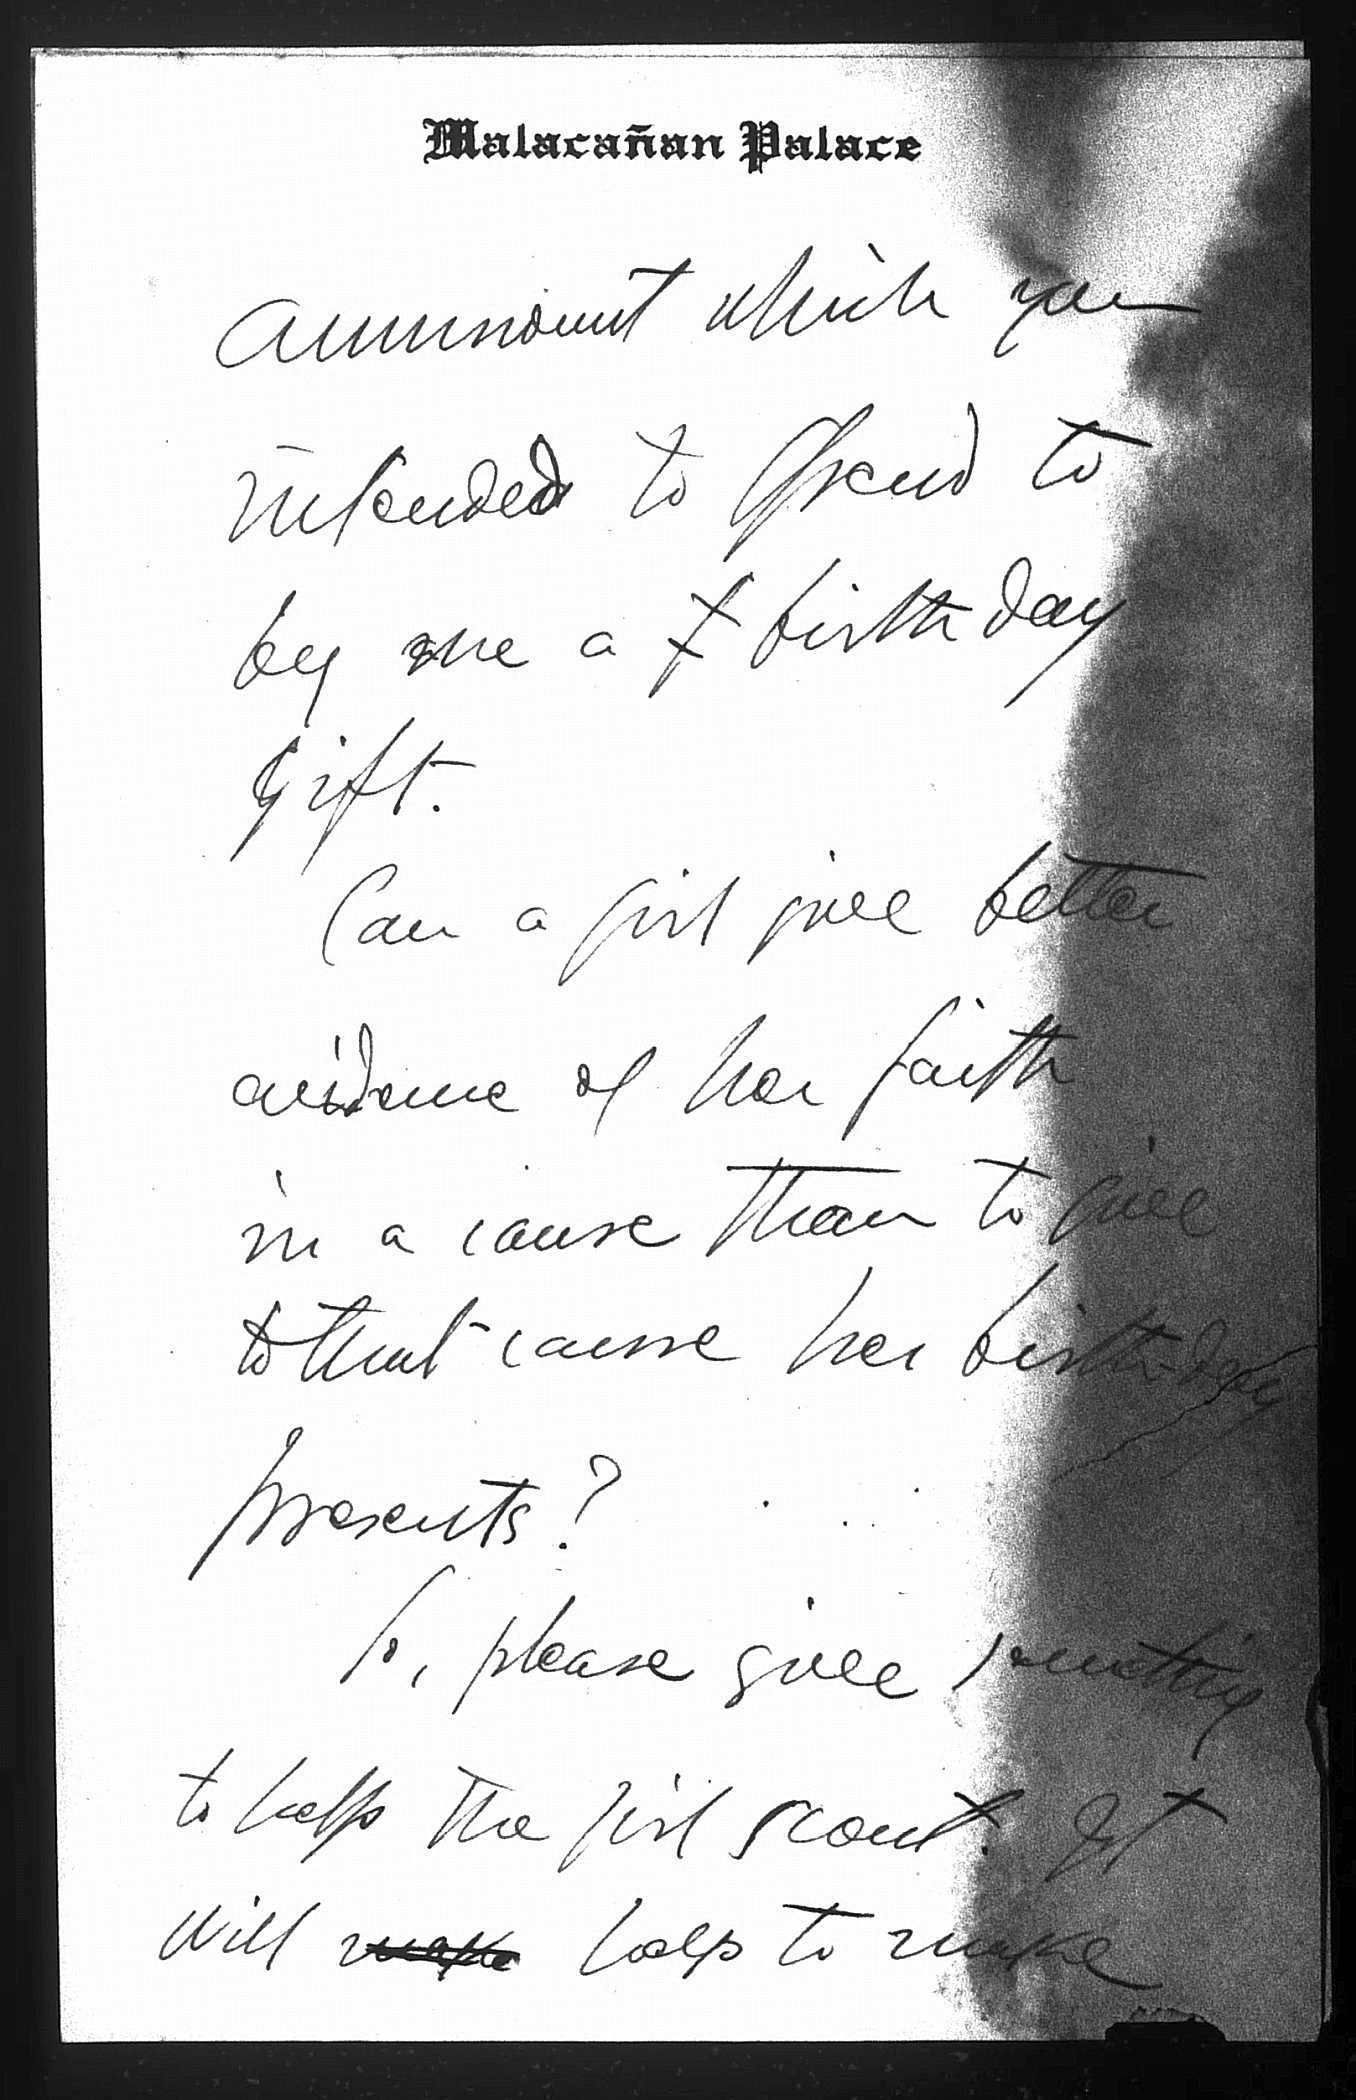 Malacañan Palace
ammount which you
intended to spend to
by me a birthday
gift.
Can a girl give better
evidence of her faith
in a cause than to give
to that cause her birth-day
presents?
So, please give something
to help the girl scout. It
will make help to make